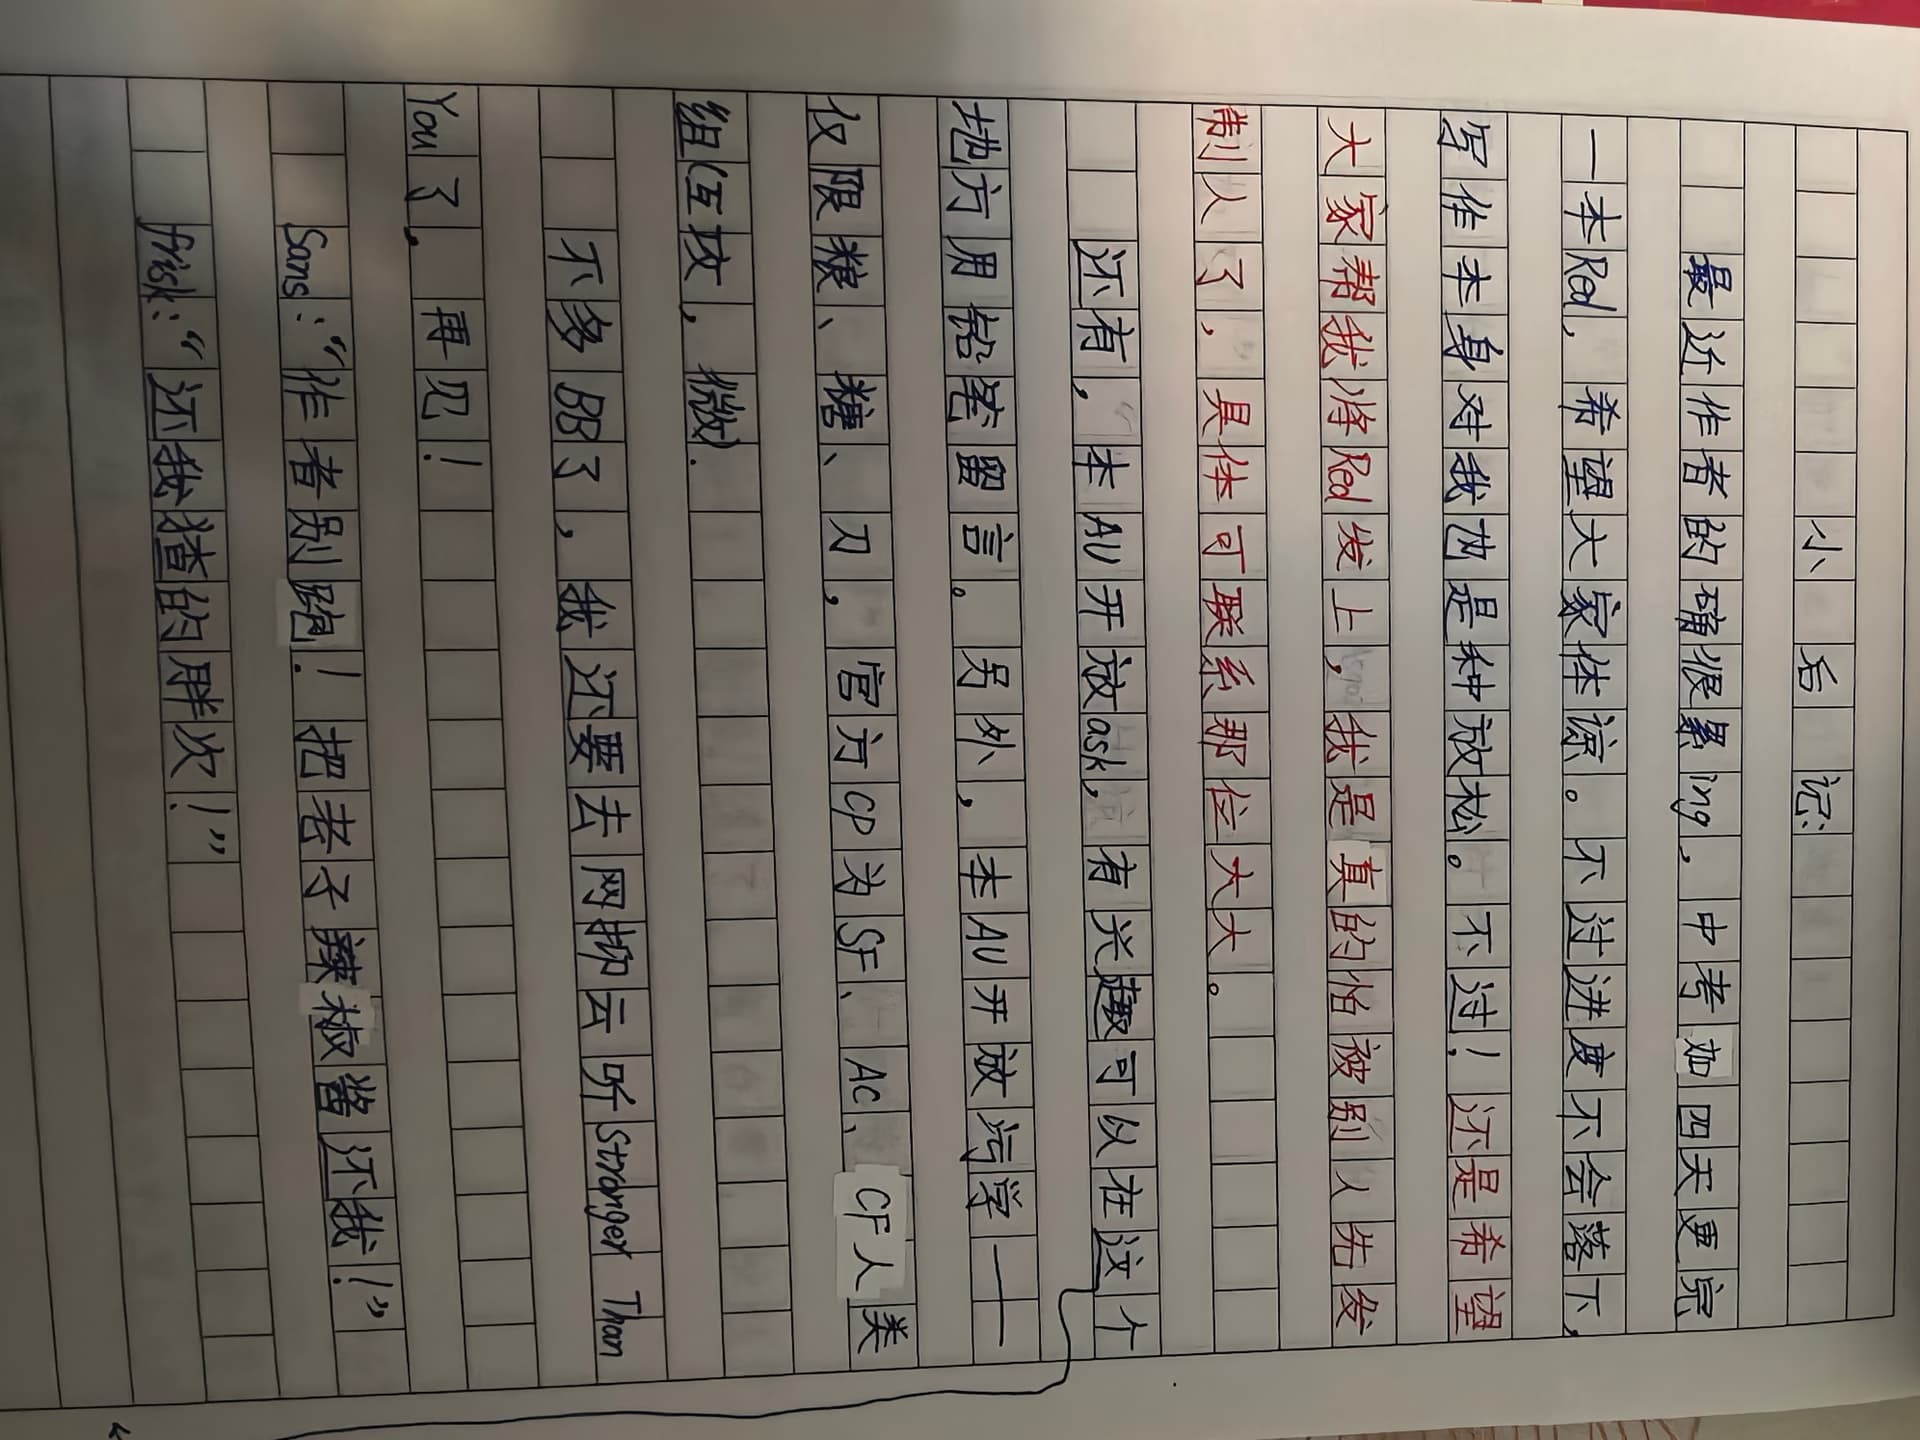 小后记:
最近作者的确很累ing，中考加四天更完
一本Red，希望大家体谅。不过进度不会落下，
写作本身对我也是种放松。不过！还是希望
大家帮我将Red发上，我是真的怕被别人先发
制人了，具体可联系那位大大。
还有，本AU开放ask，有兴趣可以在这个
地方用铅笔留言。另外，本AU开放污学——
仅限粮、糖、刀，官方CP为SF、AC、CF人类
组(互攻，微).
不多BB了，我还要去网抑云听Stronger Than
You了。再见！
Sans：“作者别跑！把老子辣椒酱还我！”
frisk：“还我猹的胖次！”